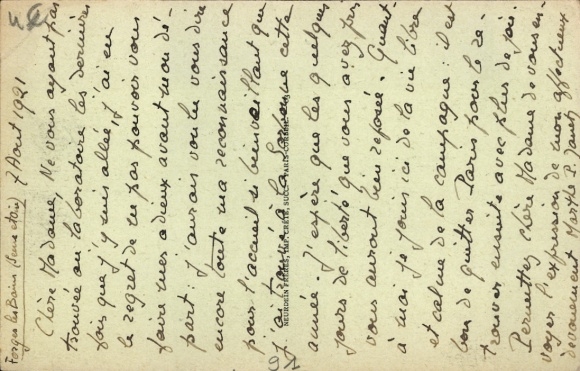 Forges les Bains (Seine et Oise) 7 Août 1921
Chère Madame, Ne vous ayant pas
trouvée au laboratoire les dernières
fois que j'y suis allée, j'ai eu
le regret de ne pas pouvoir vous
faire mes adieux avant mon dé-
part : j'aurais voulu vous dire
encore toute ma reconnaissance
pour l'accueil si bienveillant que
j'ai trouvé à la Sorbonne cette
année. J'espère que les quelques
jours de liberté que vous avez pris
vous auront bien reposée. Quant
à moi je jouis ici de la vie libre
et calme de la campagne : il est
bon de quitter Paris pour le re-
trouver ensuite avec plus de joie.
Permettez chère Madame de vous en-
voyer l'expression de mon affectueux
dévouement Marthe P. Janet
NEURDEIN FRÈRES, IMP. CRÉTÉ, SUCC. PARIS-CORBEIL